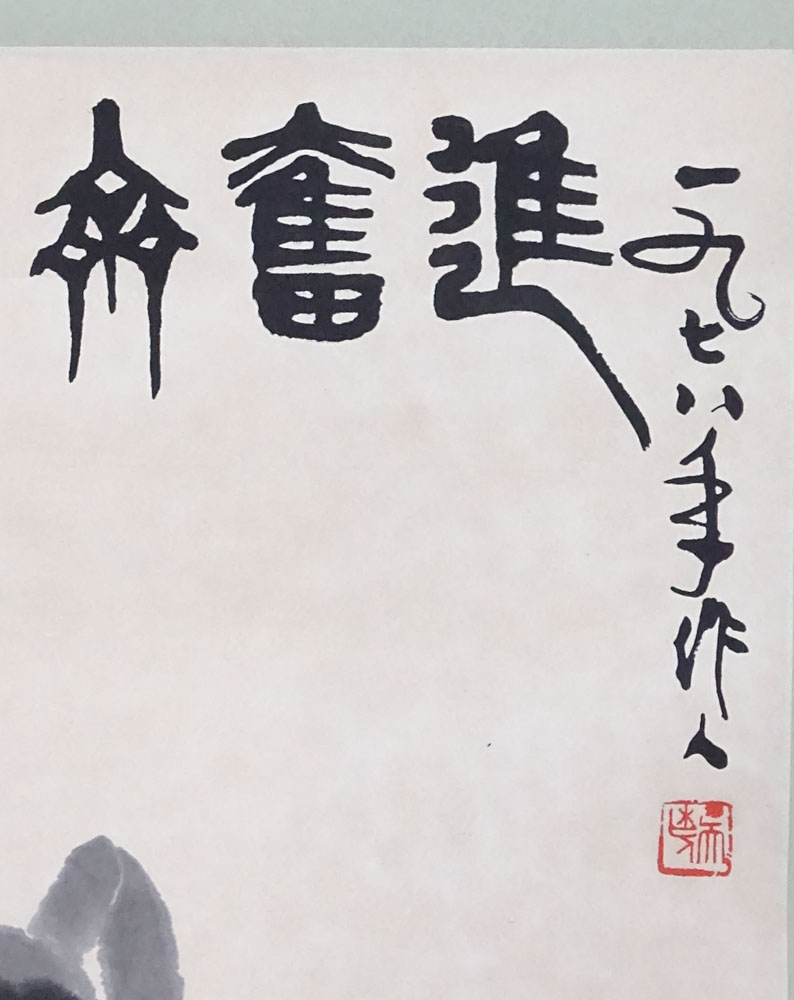 齊奮進
一九七八年作人